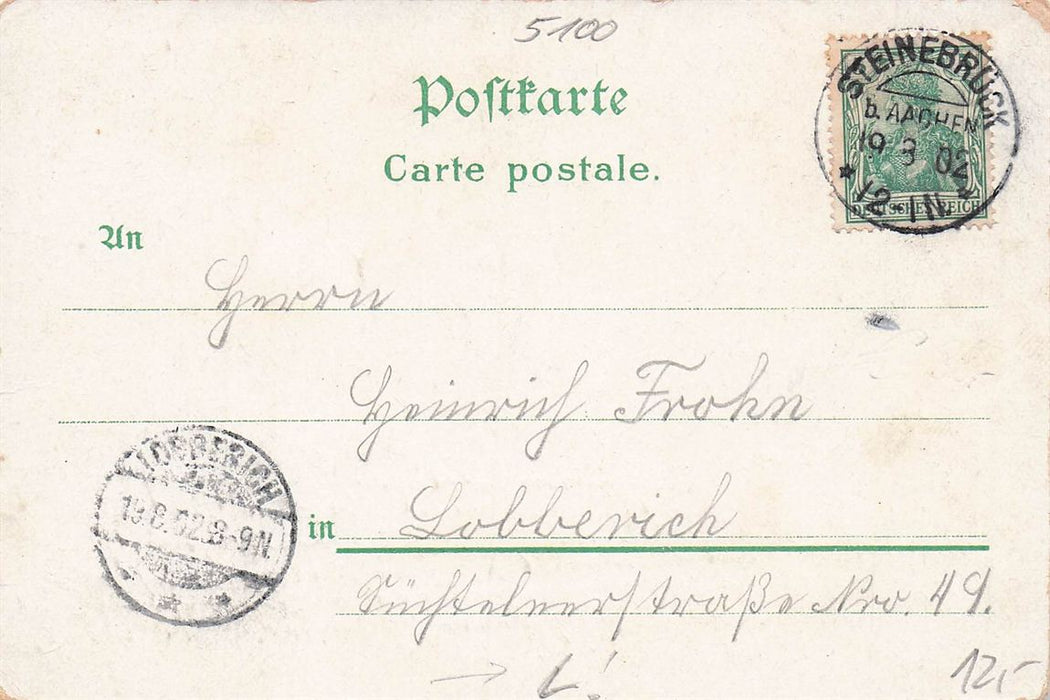 5100
Postkarte
Carte postale.
STEINEBRÜCK
b. AACHEN
19 8 02
12-1N.
DEUTSCHES REICH
An
Herrn
Heinrich Frohn
LOBBERICH
19.8.02.8-9N
in Lobberich
Süchtelnerstraße Nro. 49.
L!
12,-